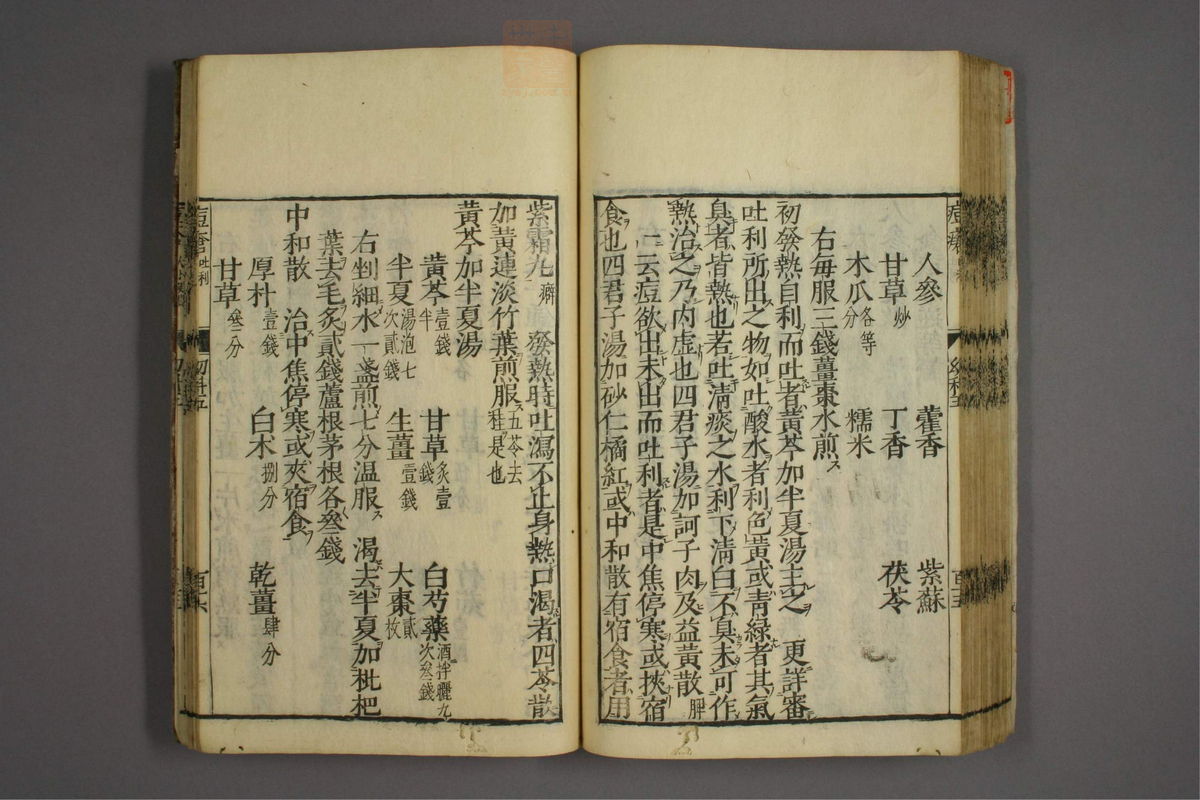 人參 藿香 紫蘇
甘草炒 丁香 茯苓
木瓜各等分 糯米
右每服三錢薑棗水煎
初發熱自利而吐者黃芩加半夏湯主之 更詳審
吐利所出之物如吐酸水者利色黃或青綠者其氣
臭者皆熱也若吐清痰之水利下清白不臭未可作
熱治之乃內虛也四君子湯加訶子肉及益黃散脾
一云痘欲出未出而吐利者是中焦停寒或挾宿
食也四君子湯加砂仁橘紅或中和散有宿食者用
紫霜丸癖 發熱時吐瀉不止身熱口渴者四苓散
加黃連淡竹葉煎服五苓去桂是也
黃芩加半夏湯
黃芩壹錢半 甘草炙壹錢 白芍藥酒拌曬九次叄錢
半夏湯泡七次貳錢 生薑壹錢 大棗貳枚
右剉細水一盞煎七分溫服 渴去半夏加枇杷
葉去毛炙貳錢蘆根茅根各叄錢
中和散 治中焦停寒或夾宿食
厚朴壹錢 白朮捌分 乾薑肆分
甘草叄分
痘瘡吐利 幼科五 百十六